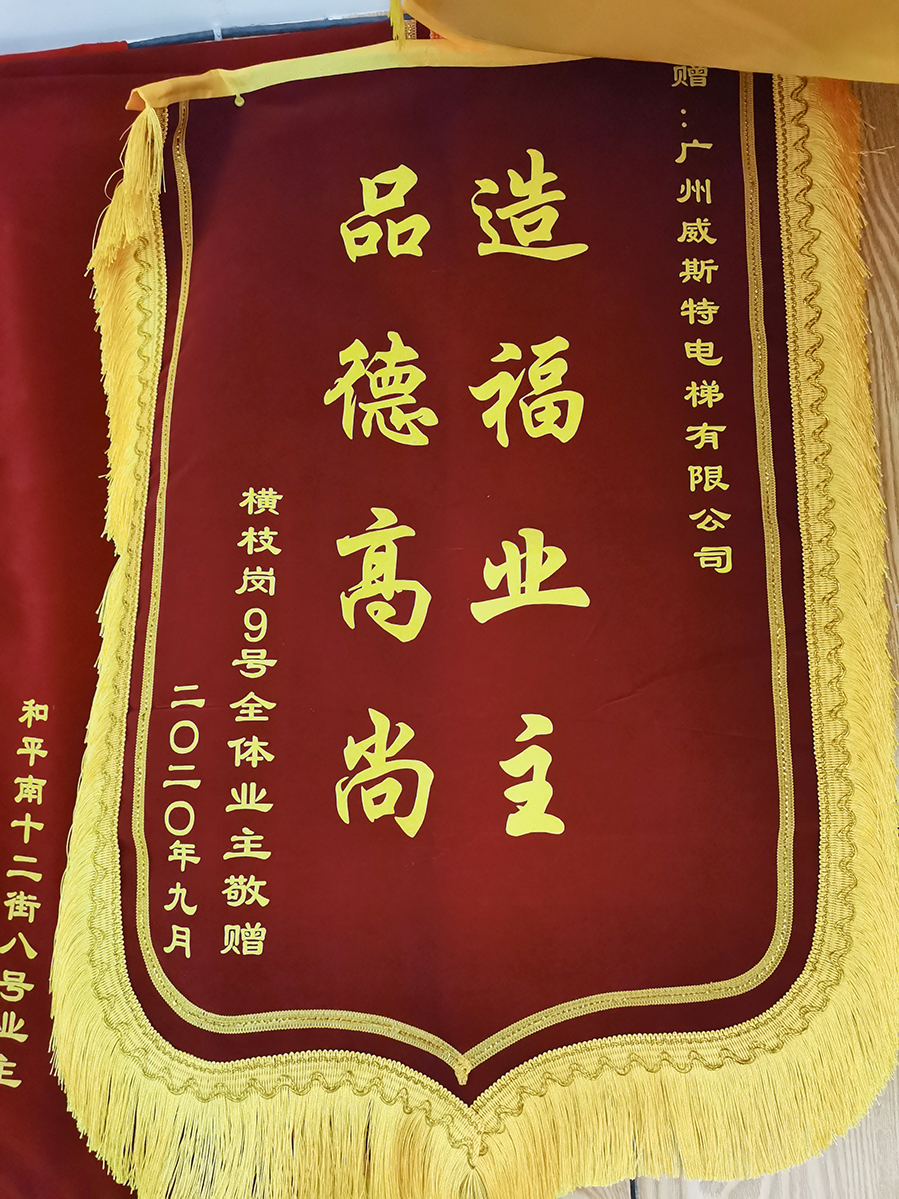 赠:广州威斯特电梯有限公司
造福业主
品德高尚
横枝岗9号全体业主敬赠
二〇二〇年九月
和平南十二街八号业主